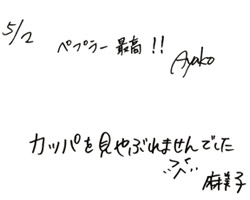 5/2
ペプラー最高!!
Ayako
カッパを見やぶれませんでした
麻美子